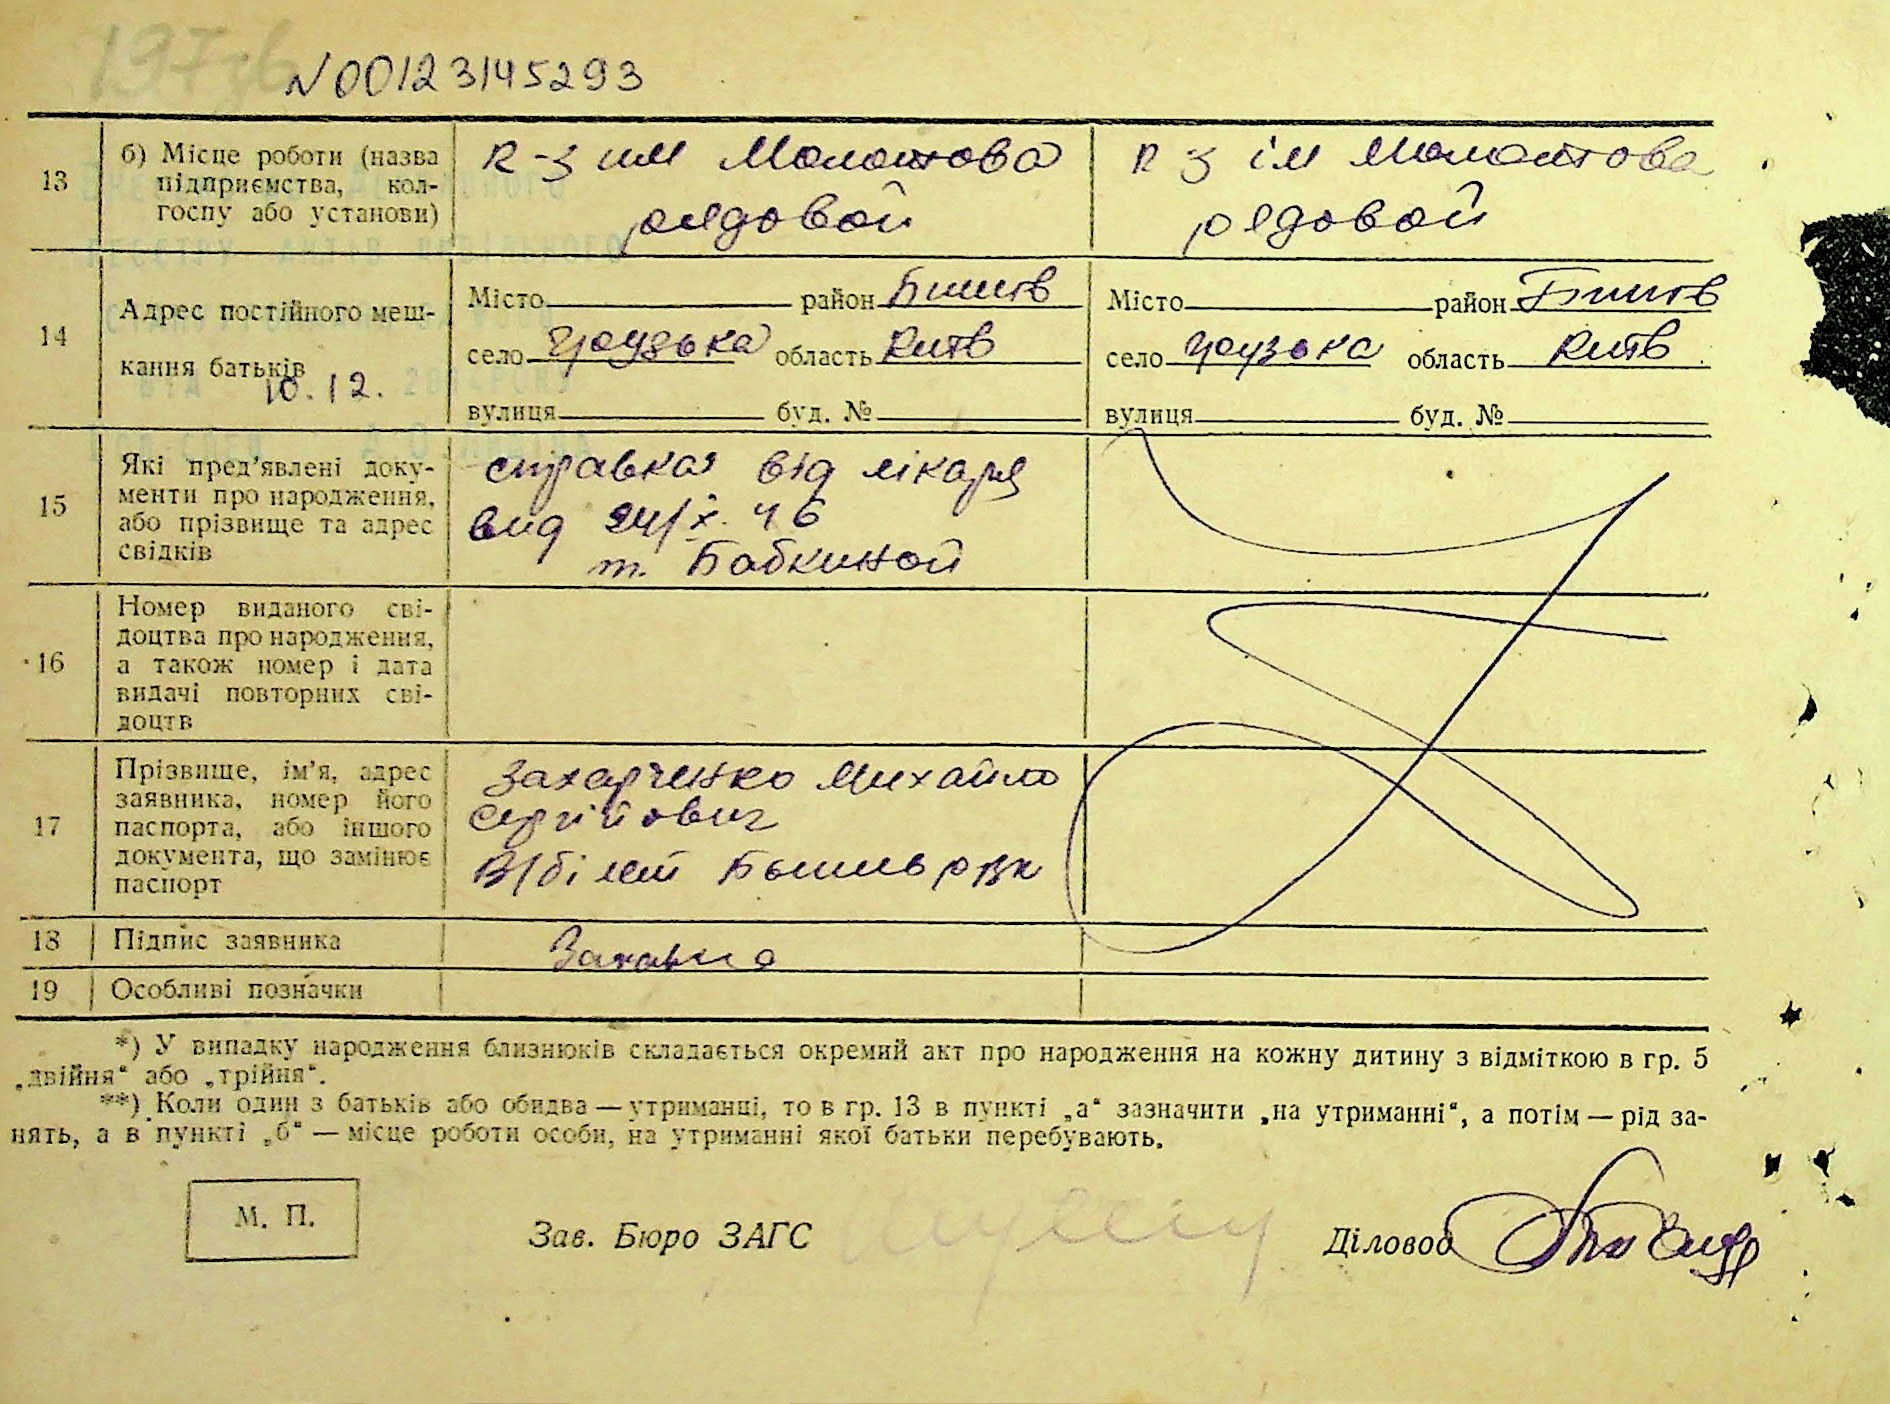 N00123145293
13
б) Місце роботи (назва підприємства, кол-
госпу або установи)
к-з им Молотова
рядовой
к з ім Молотова
рядовой
14
Адрес постійного меш-
кання батьків
10.12.
Місто район Бишів
село Грузька область Київ
вулиця буд. №
Місто район Бишів
село Грузька область Київ
вулиця буд. №
15
Які пред'явлені доку-
менти про народження,
або прізвище та адрес
свідків
справка від лікаря
вид 24/X. 46
т. Бабкиной
16
Номер виданого сві-
доцтва про народження,
а також номер і дата
видачі повторних сві-
доцтв
17
Прізвище, ім'я, адрес
заявника, номер його
паспорта, або іншого
документа, що замінює
паспорт
Захарченко Михайло
Сергійович
В/білет Бышев РВК
18
Підпис заявника
19
Особливі позначки
*) У випадку народження близнюків складається окремий акт про народження на кожну дитину з відміткою в гр. 5
„двійня“ або „трійня“.
**) Коли один з батьків або обидва — утриманці, то в гр. 13 в пункті „а“ зазначити „на утриманні“, а потім — рід за-
нять, а в пункті „б“ — місце роботи особи, на утриманні якої батьки перебувають.
М. П.
Зав. Бюро ЗАГС
Діловод